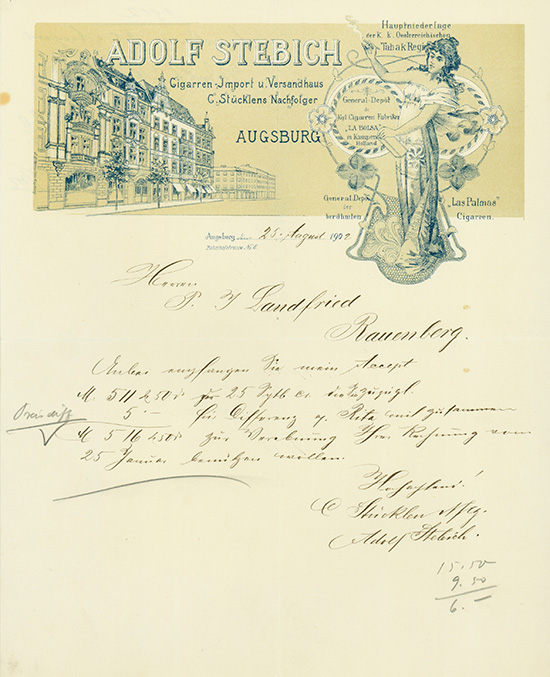 ADOLF STEBICH
Cigarren-Import u. Versandhaus
C. Stücklens Nachfolger
AUGSBURG
Hauptniederlage
der K. K. Oesterreichischen
Tabak Regie
General-Depôt
der
Kgl Cigarren Fabriken
"LA BOLSA"
in Kampen
Holland
General-Depôt
der
berühmten
"Las Palmas"
Cigarren.
Augsburg, 25. August 1902.
Bahnhofstrasse
Herrn
P. J. Landfried
Rauenberg.
Anbei empfangen Sie mein Accept
M. 511.50 25 Sptb cr
5.- für Differenz a. mit zusammen
M 516.50 zur Ihrer Rechnung vom
25 Januar benützen wollen.
Hochachtend!
C Stücklen Nflg.
Adolf Stebich.
15.50
9.50
6.-